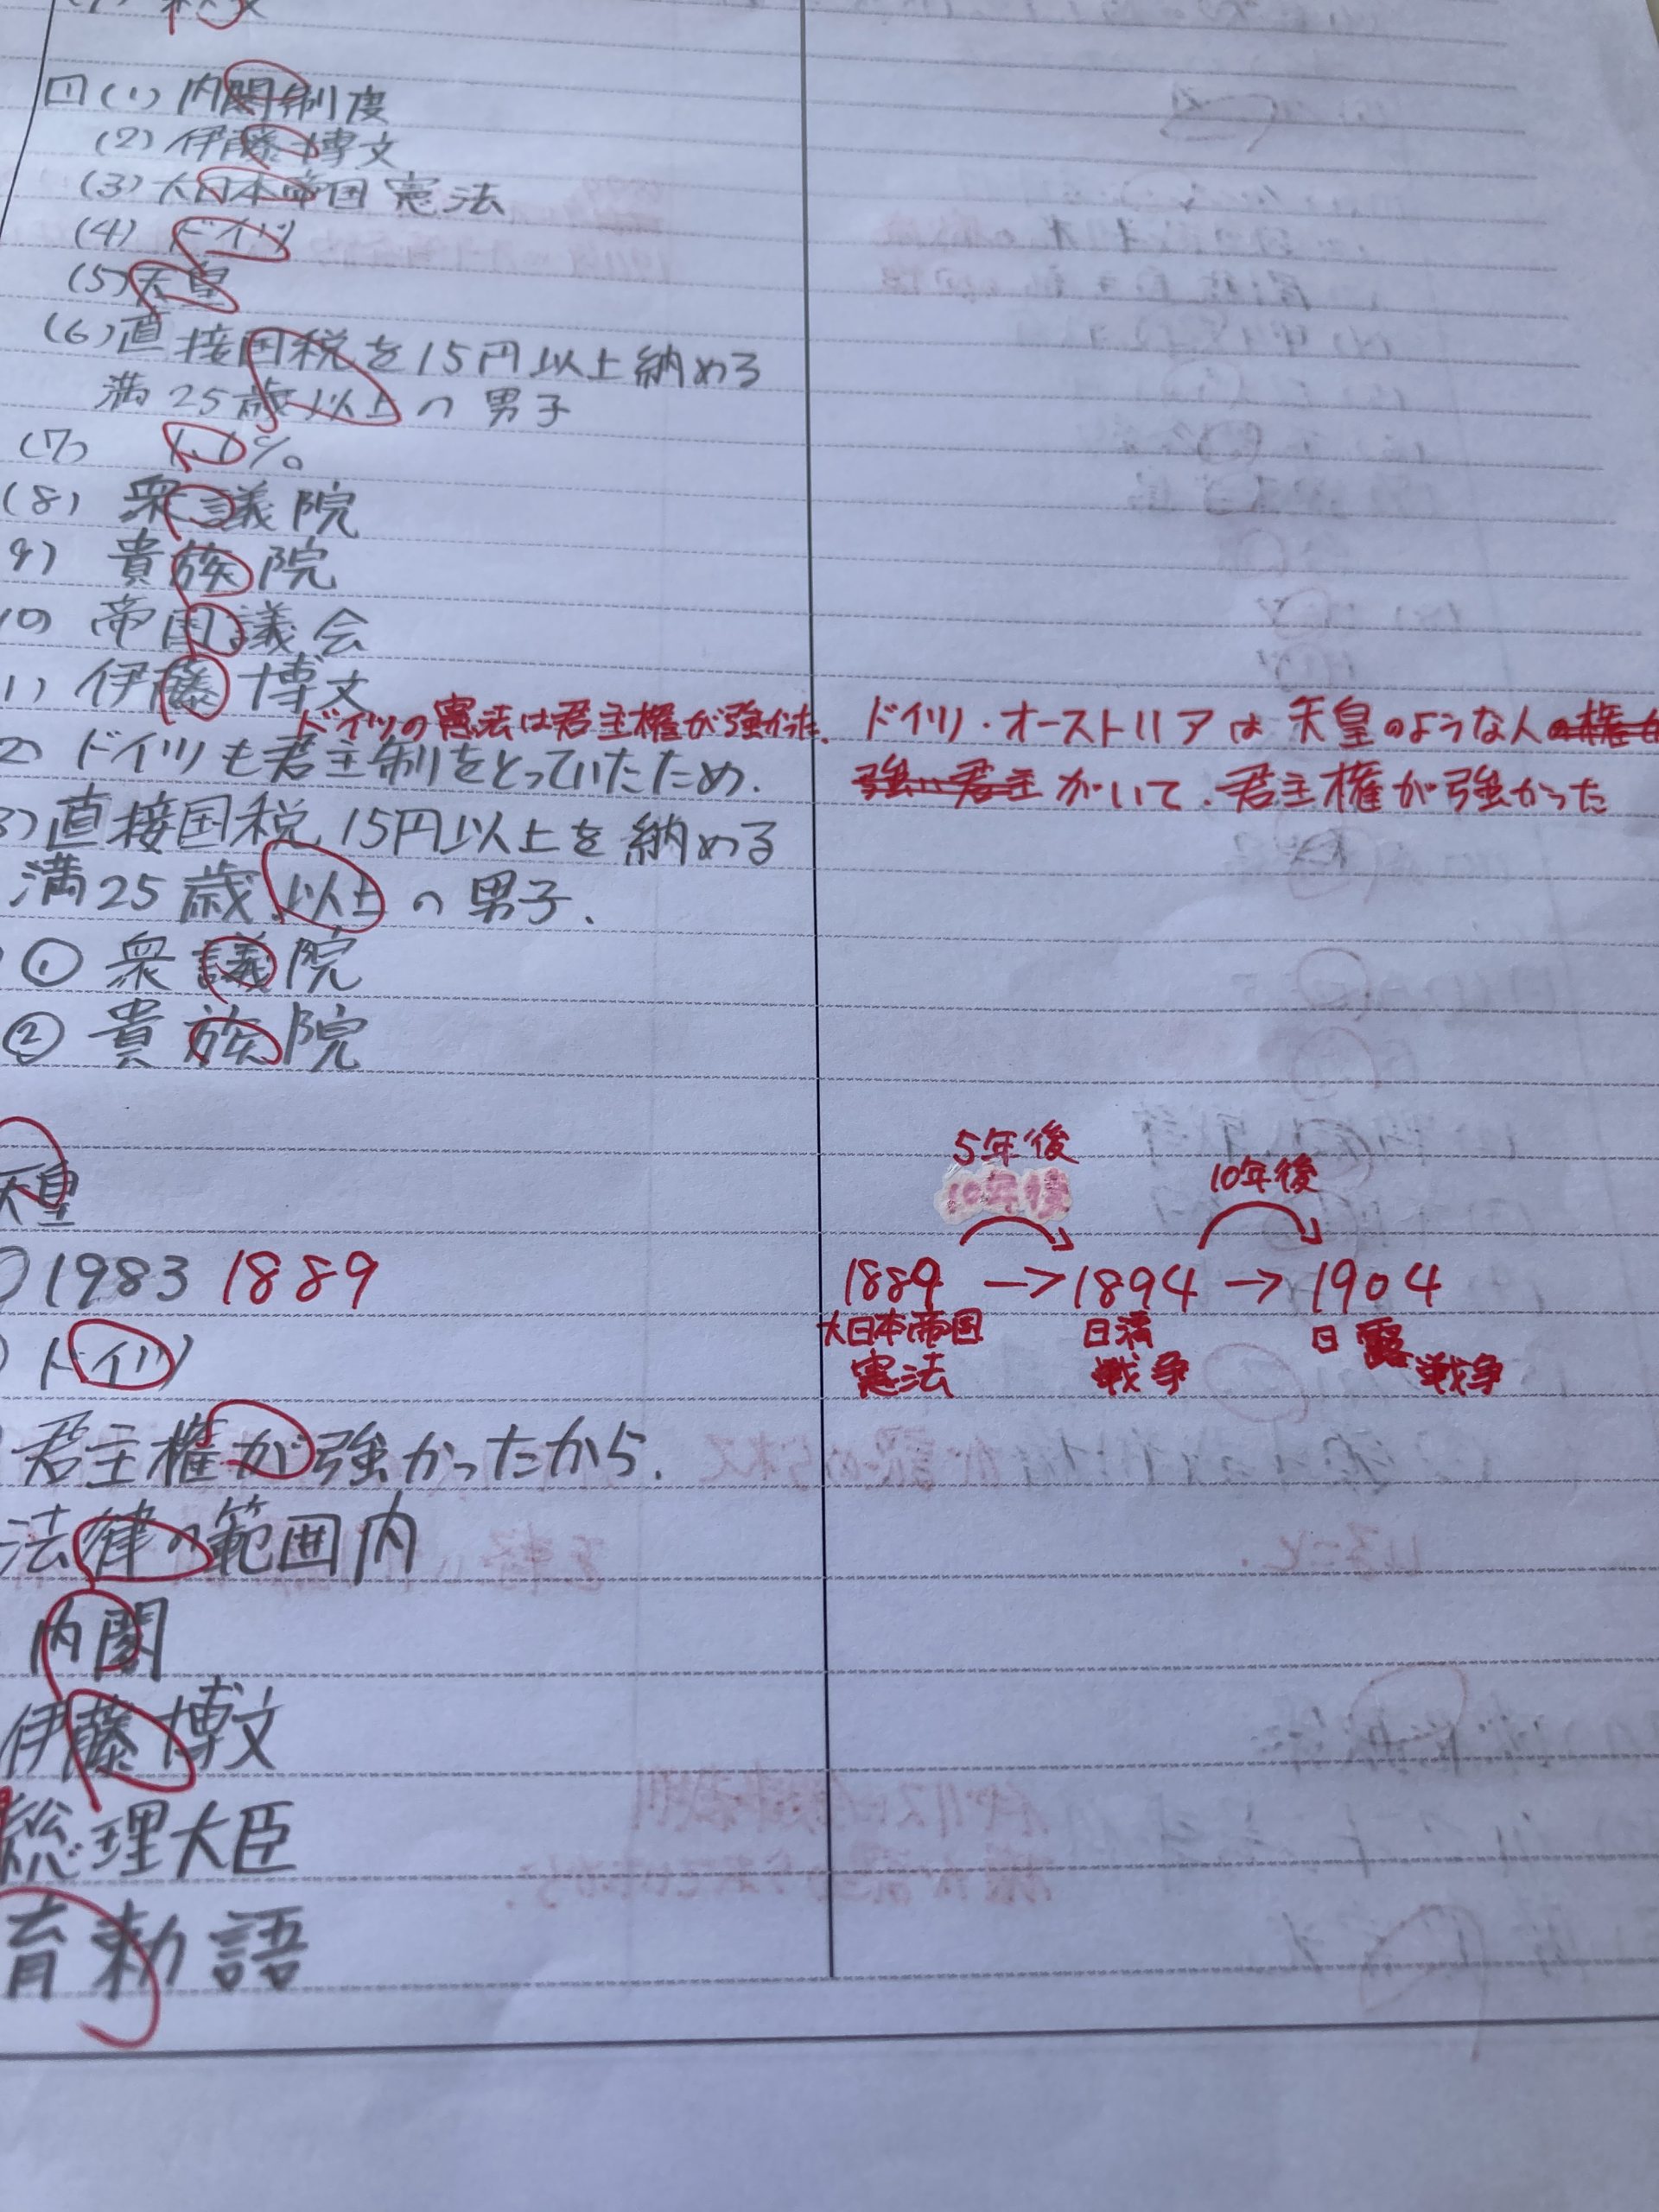 四(1) 内閣制度
(2) 伊藤博文
(3) 大日本帝国憲法
(4) ドイツ
(5) 天皇
(6) 直接国税を15円以上納める
満25歳以上の男子
(7) 1.1%
(8) 衆議院
9) 貴族院
10) 帝国議会
1) 伊藤博文
ドイツの憲法は君主権が強かった。
2) ドイツも君主制をとっていたため.
ドイツ・オーストリアは天皇のような人
がいて、君主権が強かった
3) 直接国税15円以上を納める
満25歳以上の男子.
① 衆議院
② 貴族院
天皇
1983 1889
5年後
10年後
10年後
1889 → 1894 → 1904
大日本帝国憲法
日清戦争
日露戦争
) ドイツ
君主権が強かったから.
法律の範囲内
内閣
伊藤博文
総理大臣
育勅語